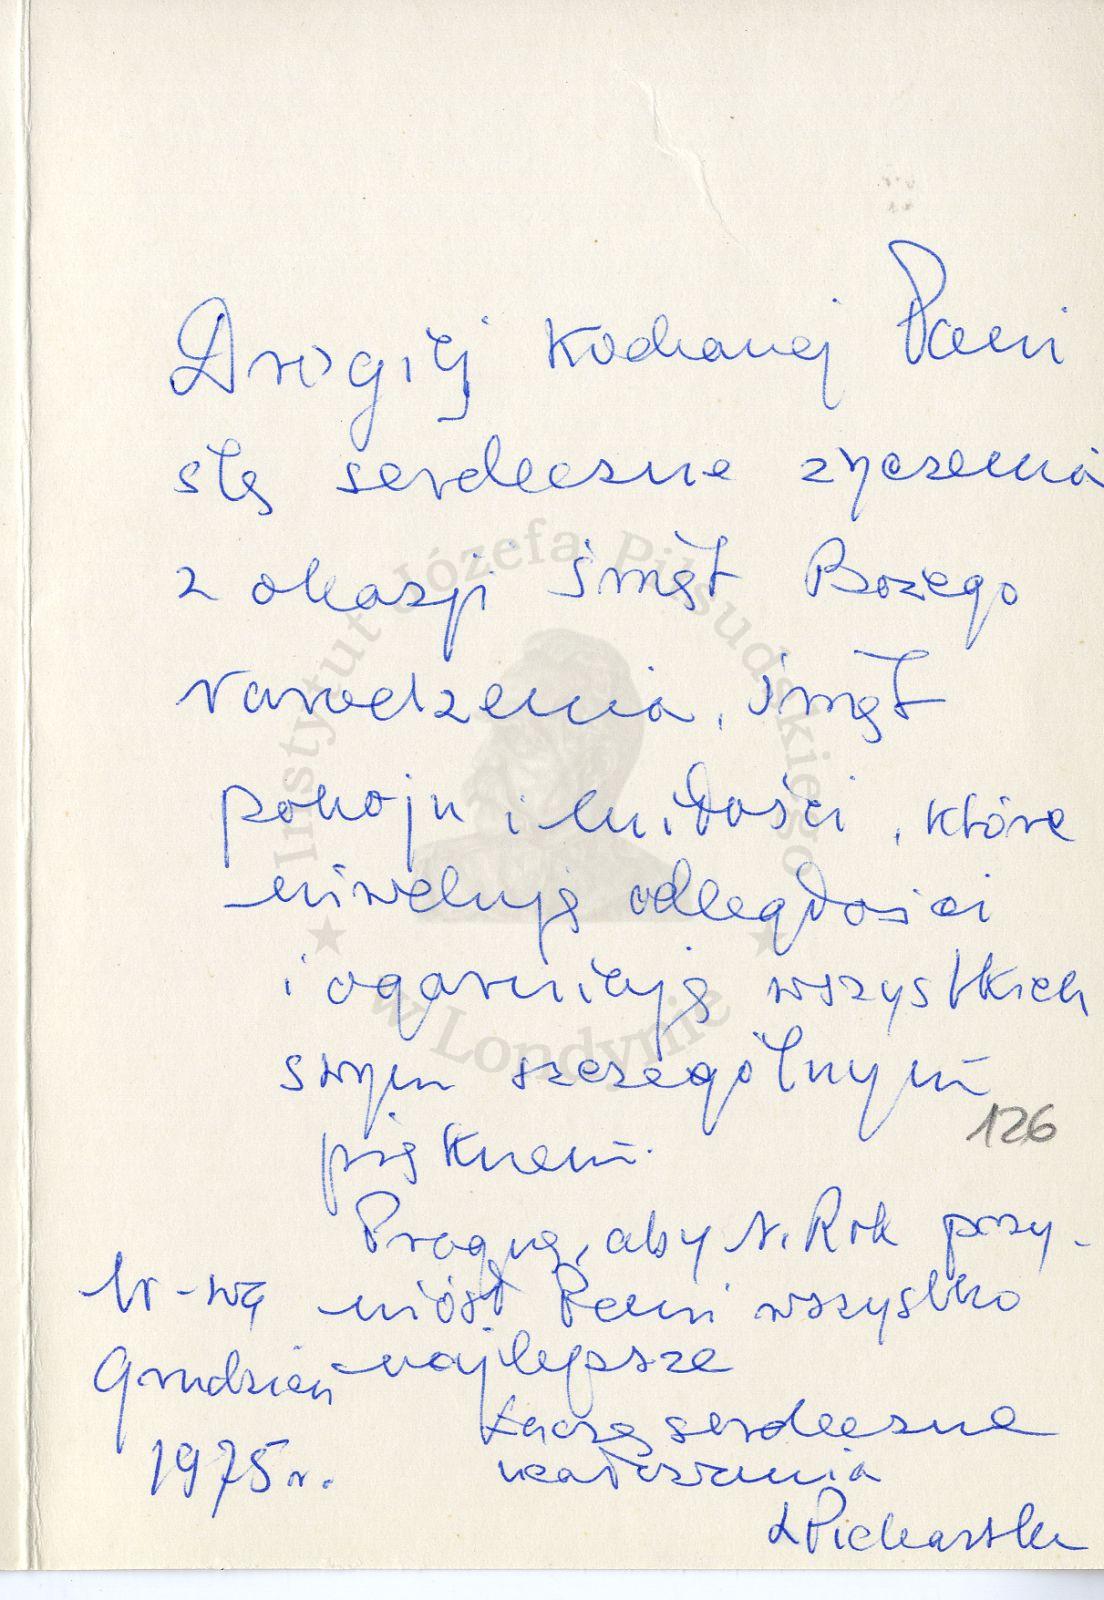 Drogiej Kochanej Pani
ślę serdeczne życzenia
z okazji Świąt Bożego
Narodzenia, Świąt
pokoju i miłości, które
niwelują odległości
i ogarniają wszystkich
swym szczególnym
pięknem.
126
Pragnę, aby N. Rok przy-
niósł Pani wszystko
najlepsze
Łączę serdeczne
ucałowania
W-wa
Grudzień
1975 r.
Instytut Józefa Piłsudskiego
w Londynie